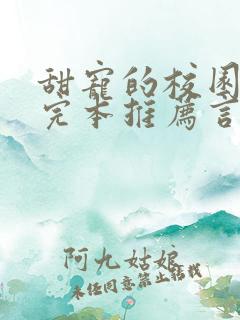 甜宠的校园
完本推荐言
阿九姑娘
未经同意禁止转载